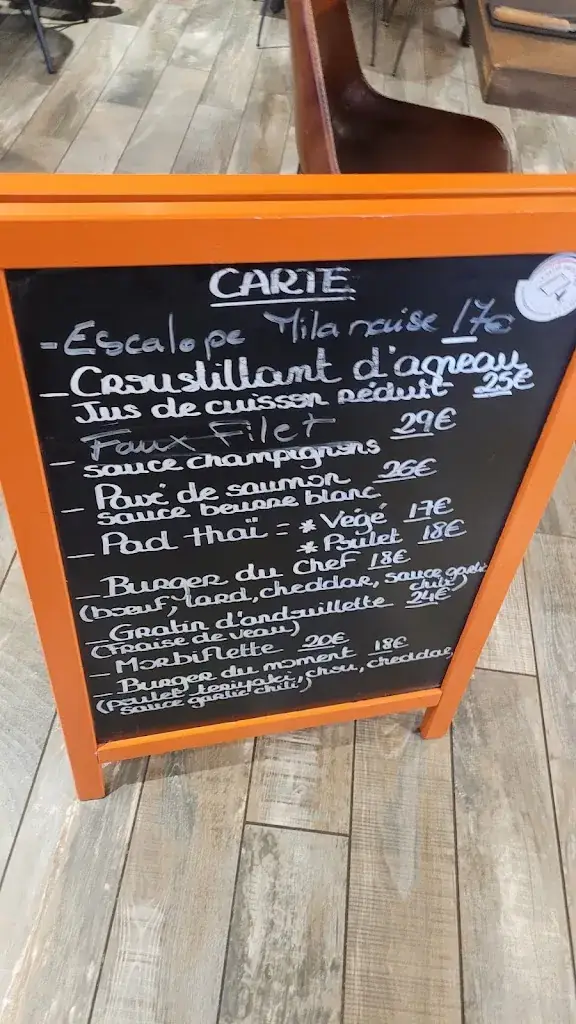 CARTE
- Escalope Milanaise 17€
- Croustillant d'agneau
Jus de cuisson réduit 25€
Faux Filet 29€
- sauce champignons
- Pavé de saumon 26€
sauce beurre blanc
- Pad thaï = * Végé 17€
* Poulet 18€
- Burger du chef 18€
(bœuf, lard, cheddar, sauce garlic
chili)
- Gratin d'andouillette 24€
(Fraise de veau)
- Morbiflette 20€
- Burger du moment 18€
(poulet teriyaki, chou, cheddar,
sauce garlic chili)